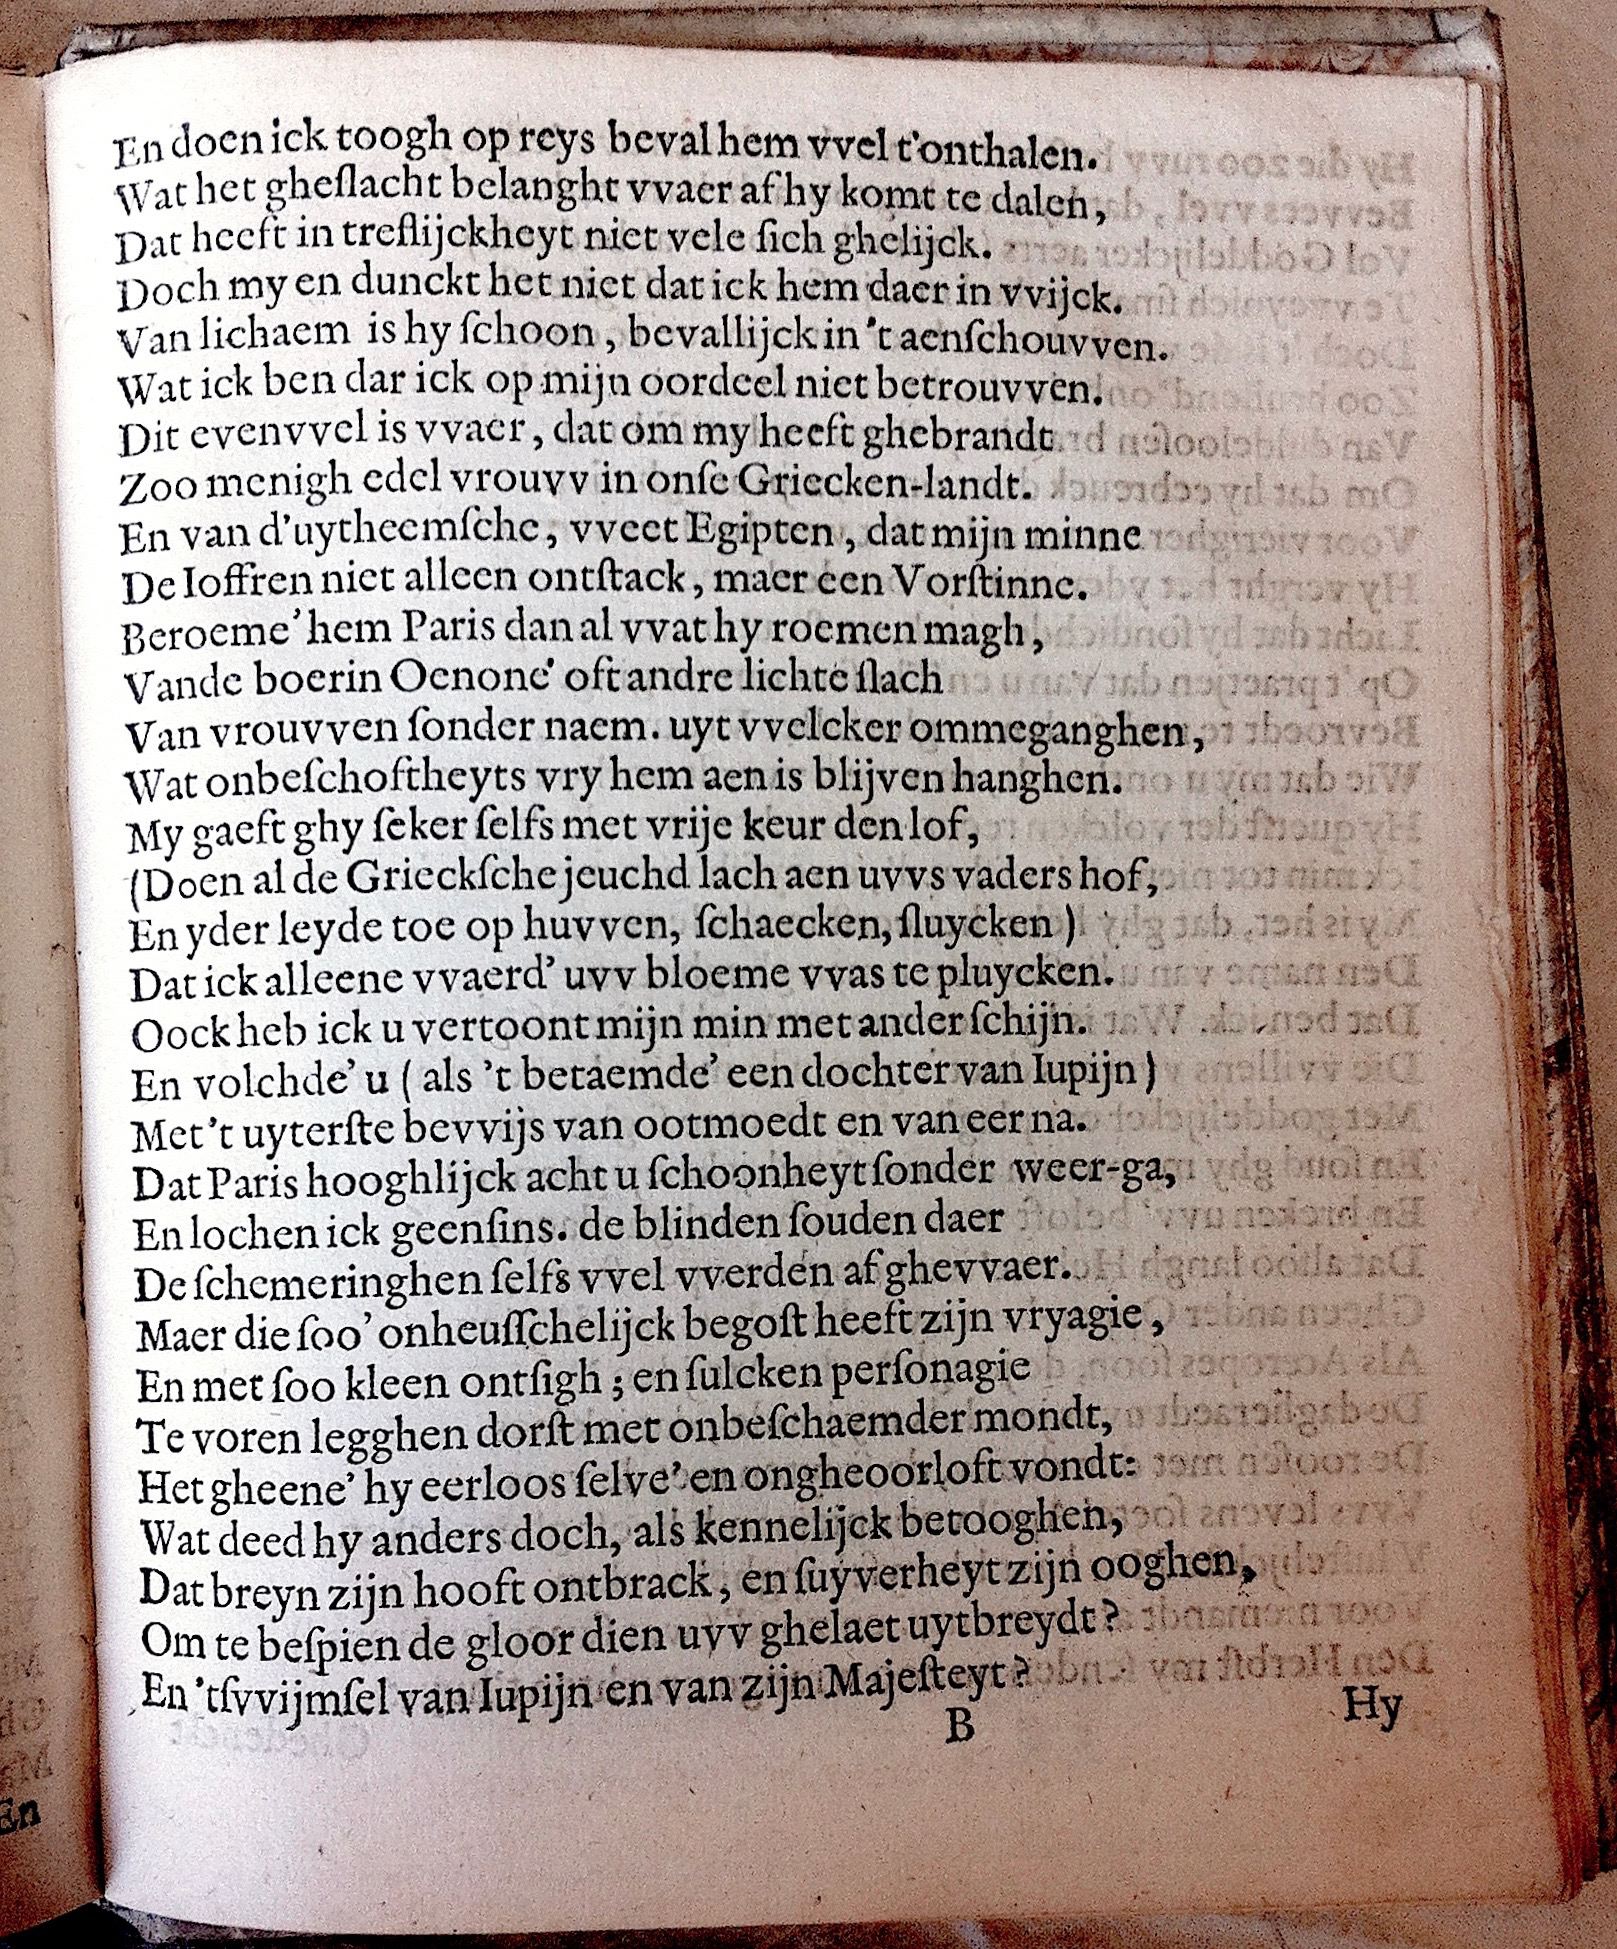 En doen ick toogh op reys beval hem vvel t'onthalen.
Wat het gheſlacht belanght vvaer af hy komt te dalen,
Dat heeft in treflijckheyt niet vele ſich ghelijck.
Doch my en dunckt het niet dat ick hem daer in vvijck.
Van lichaem is hy ſchoon, bevallijck in 't aenſchouvven.
Wat ick ben dar ick op mijn oordeel niet betrouvven.
Dit evenvvel is vvaer, dat om my heeft ghebrandt
Zoo menigh edel vrouvv in onſe Griecken-landt.
En van d'uytheemſche, vveet Egipten, dat mijn minne
De Ioffren niet alleen ontſtack, maer een Vorſtinne.
Beroeme' hem Paris dan al vvat hy roemen magh,
Vande boerin Oenone' oft andre lichte ſlach
Van vrouvven ſonder naem. uyt vvelcker ommeganghen,
Wat onbeſchoftheyts vry hem aen is blijven hanghen.
My gaeft ghy ſeker ſelfs met vrije keur den lof,
(Doen al de Grieckſche jeuchd lach aen uvvs vaders hof,
En yder leyde toe op huvven, ſchaecken, ſluycken)
Dat ick alleene vvaerd' uvv bloeme vvas te pluycken.
Oock heb ick u vertoont mijn min met ander ſchijn.
En volchde' u (als 't betaemde' een dochter van Iupijn)
Met 't uyterſte bevvijs van ootmoedt en van eer na.
Dat Paris hooghlijck acht u ſchoonheyt ſonder weer-ga,
En lochen ick geenſins. de blinden ſouden daer
De ſchemeringhen ſelfs vvel vverden af ghevvaer.
Maer die ſoo' onheuſſchelijck begoſt heeft zijn vryagie,
En met ſoo kleen ontſigh; en ſulcken perſonagie
Te voren legghen dorſt met onbeſchaemder mondt,
Het gheene' hy eerloos ſelve' en ongheoorloft vondt:
Wat deed hy anders doch, als kennelijck betooghen,
Dat breyn zijn hooft ontbrack, en ſuyverheyt zijn ooghen,
Om te beſpien de gloor dien uvv ghelaet uytbreydt?
En 'tſvvijmſel van Iupijn en van zijn Majeſteyt?
B
Hy
En